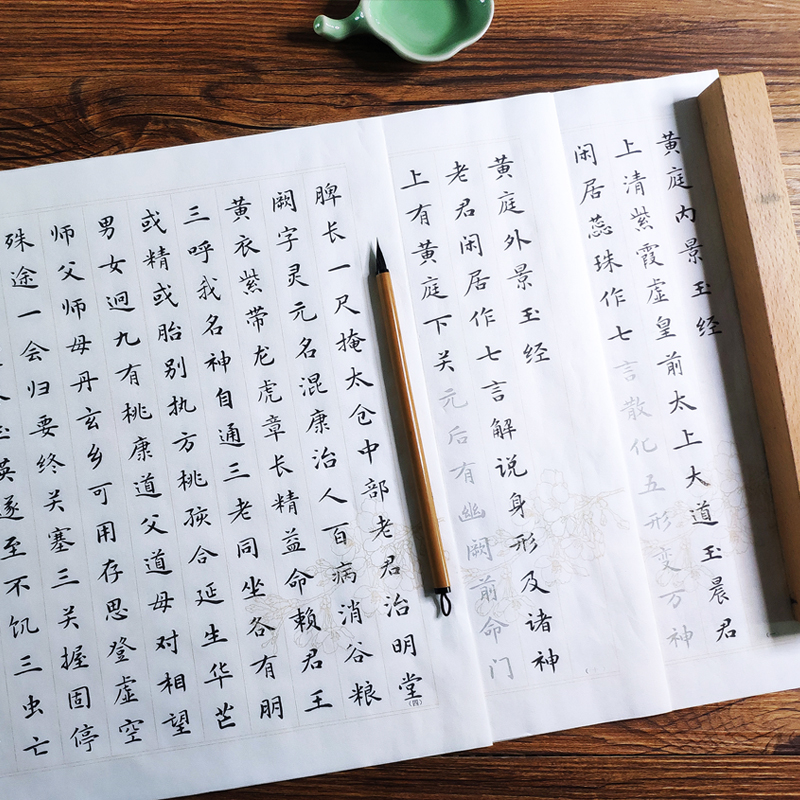 黄庭内景玉经
上清紫霞虚皇前太上大道玉晨君
闲居蕊珠作七言散化五形变万神
黄庭外景玉经
老君闲居作七言解说身形及诸神
上有黄庭下关元后有幽阙前命门
脾长一尺掩太仓中部老君治明堂
厥字灵元名混康治人百病消谷粮
黄衣紫带龙虎章长精益命赖君王
三呼我名神自通三老同坐各有朋
或精或胎别执方桃孩合延生华芒
男女迥九有桃康道父道母对相望
师父师母丹玄乡可用存思登虚空
殊途一会归要终关塞三关握固停
英遂至不饥三虫亡
(四)